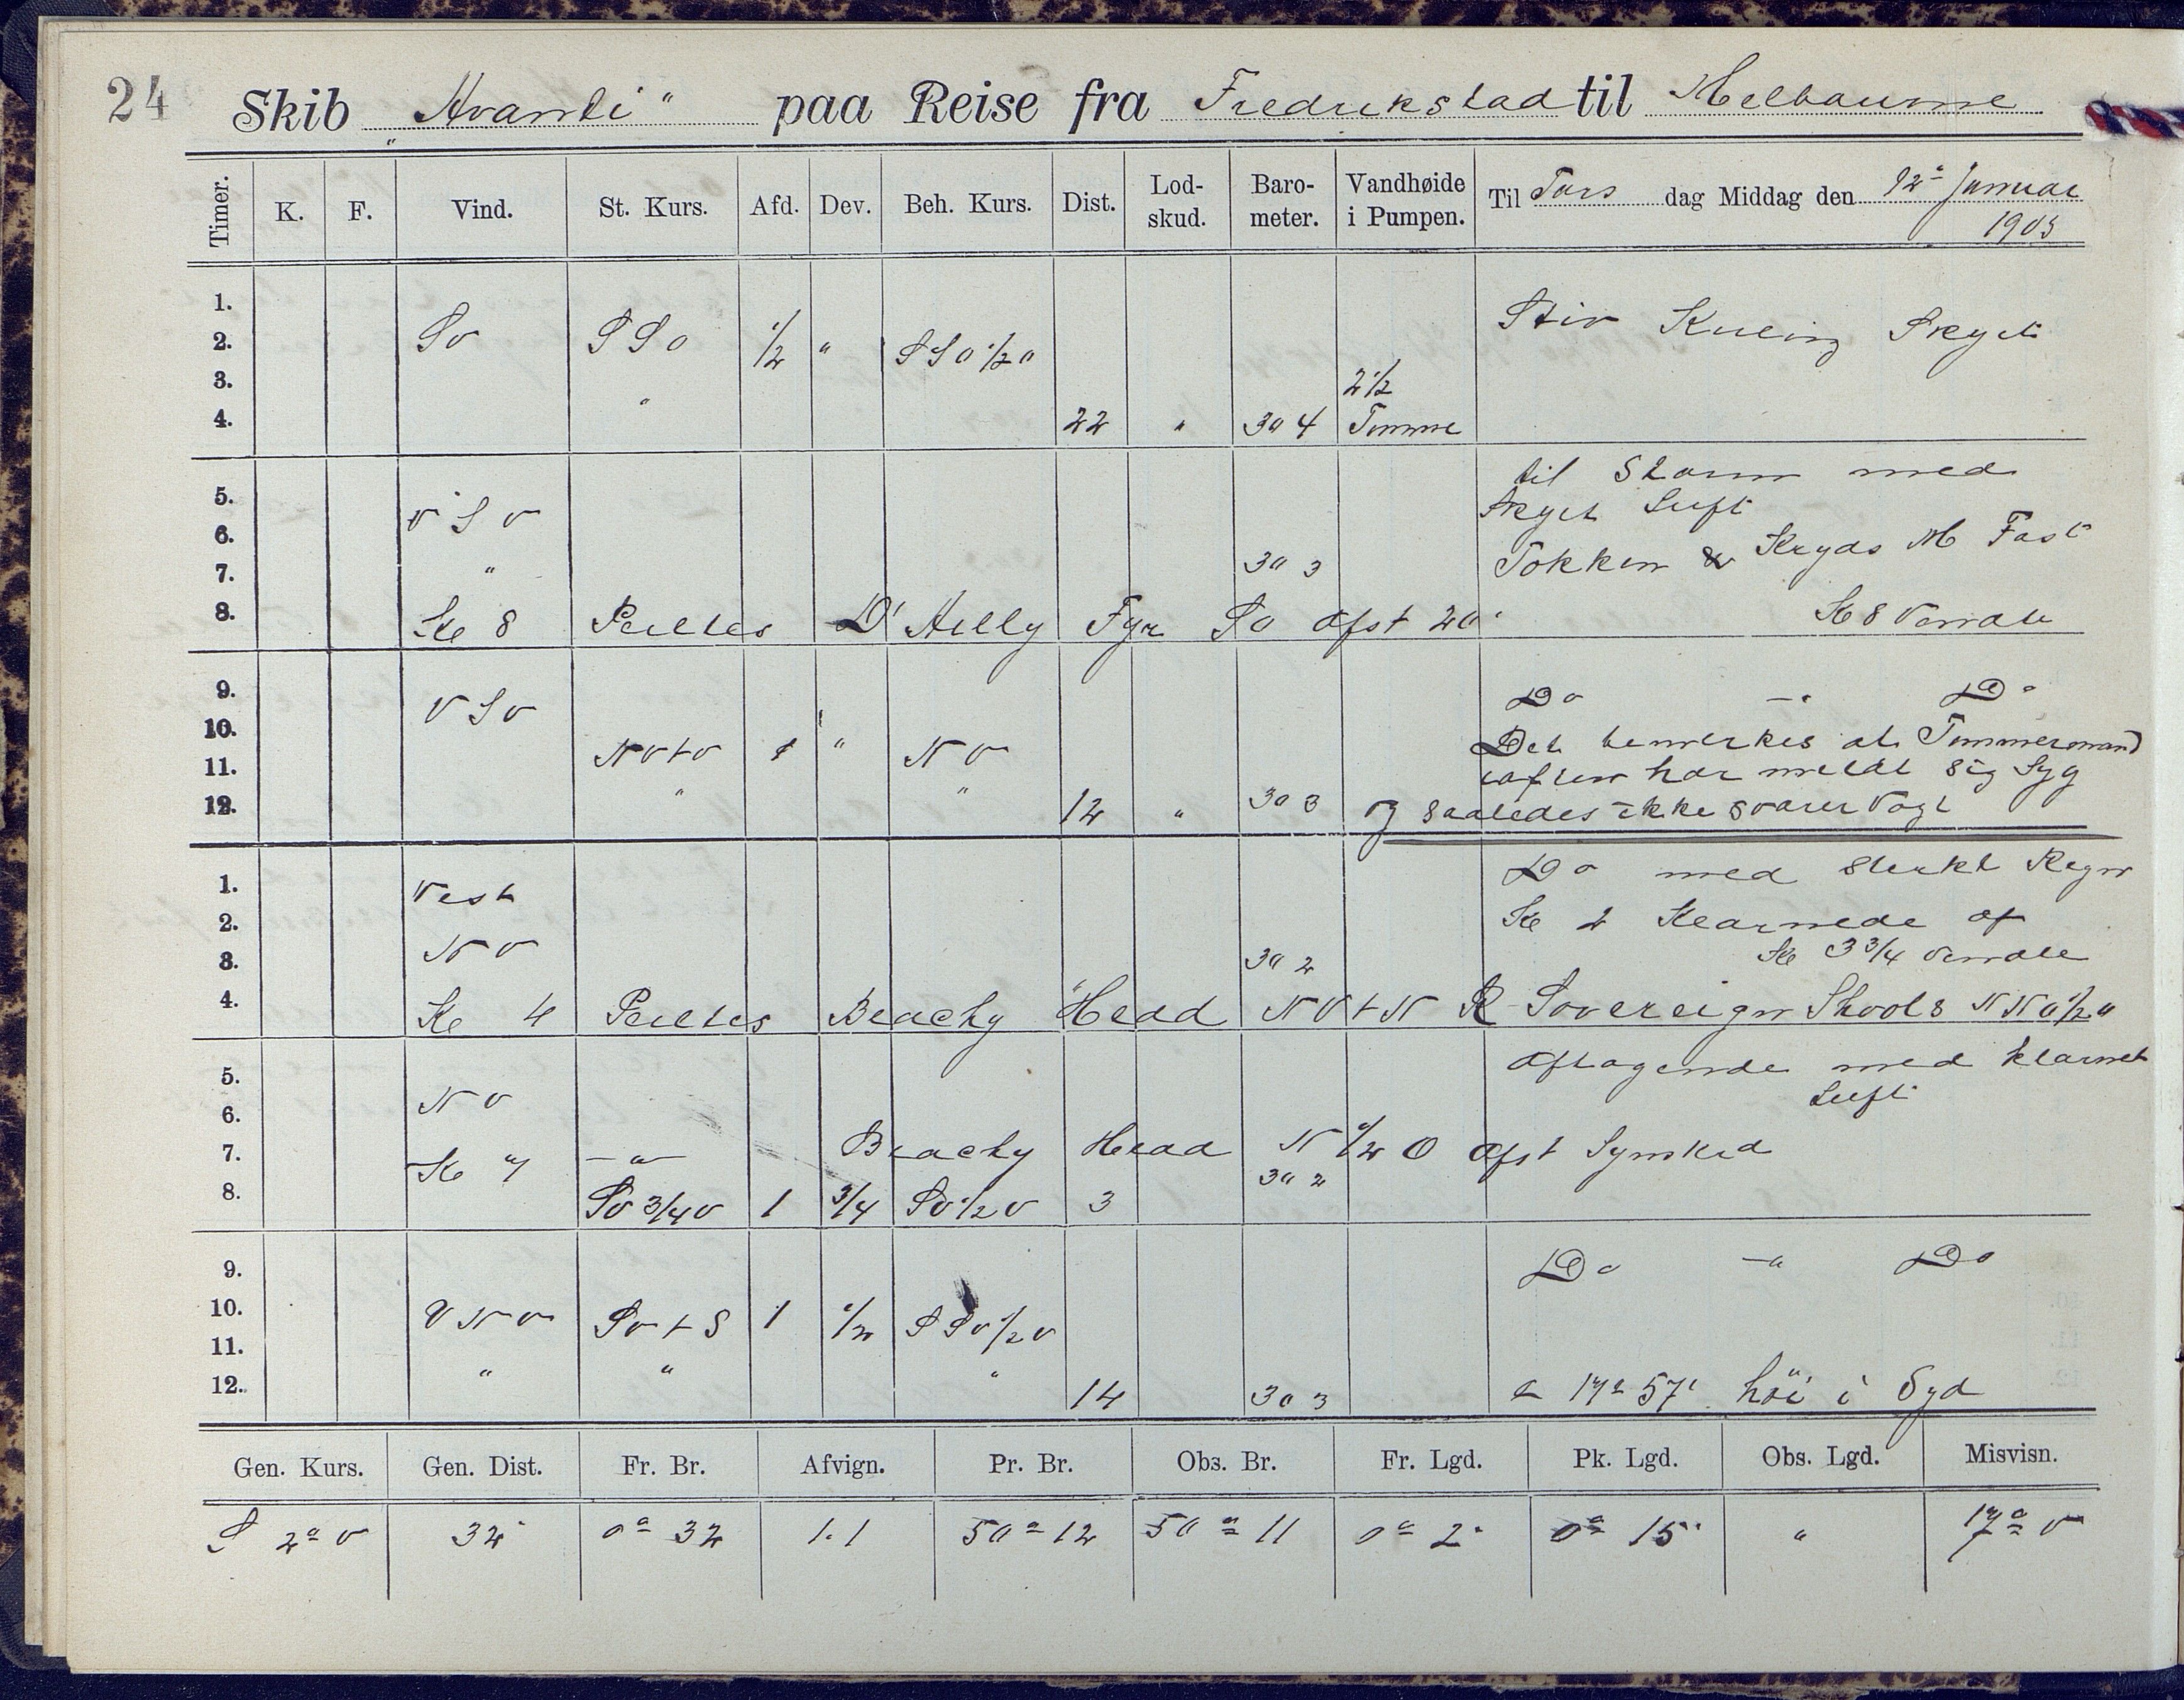 24 Skib "Avanti" paa Reise fra Fredrikstad til Melbourne
Timer. K. F. Vind. St. Kurs. Afd. Dev. Beh. Kurs. Dist. Lod-skud. Baro-meter. Vandhøide i Pumpen. Til Tors dag Middag den 12te Januar 1905
1. Stiv Kuling Skyet
2. SV SSO 1/2 " SSO 1/2 O
3. " 2 1/2
4. 22 " 30 4 Tomme
til Storm med
5. VSV Skyet Luft
6. Tokken & Kryds M Fast
7. " 30 3
8. Kl 8 Peiltes D'Ailly Fyr SO afst 20' Kl 8 Vendte
9. VSV Do -"- Do
10. NVtV 1 " NV Det bemerkes at Tømmermand
11. " " iaften har meldt sig Syg
12. 12 " 30 3 og saaledes ikke svarer Vagt
1. Vest Do med sterkt Regn
2. NV Kl 2 Klarnede af
3. 30 2 Kl 3 3/4 Vendte
4. Kl 4 Peiltes Beachy Head NVtN & Sovereign Shools NNO 1/2 O
5. Aftagende med klarnet
6. NV Luft
7. Kl 7 -"- Beachy Head N 1/2 O Afst Synskred
30 2
8. SV 3/4 V 1 3/4 SV 1/2 V 3
9. Do -"- Do
10. VNV SVtS 1 1/2 SSV 1/2 V
11. " " "
12. 14 30 3 17° 57' høi i Syd
Gen. Kurs. Gen. Dist. Fr. Br. Afvign. Pr. Br. Obs. Br. Fr. Lgd. Pk. Lgd. Obs. Lgd. Misvisn.
S 2° V 32' 0° 32 1.1 50° 12 50° 11 0° 2' 0° 15' " 17° V